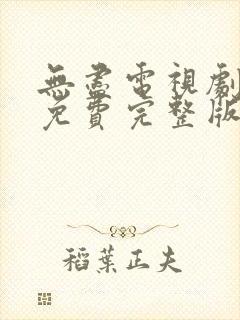 無盡電視劇
免費完整版
稻葉正夫